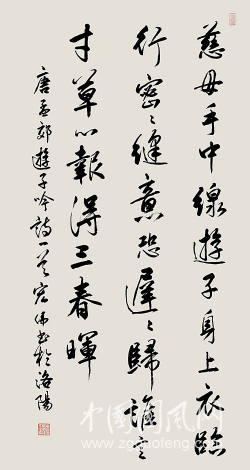 慈母手中線遊子身上衣臨
行密〻縫意恐遲〻歸誰言
寸草心報得三春暉
唐孟郊遊子吟詩一首宏偉書於洛陽
中国国风网
www.zgguofeng.com